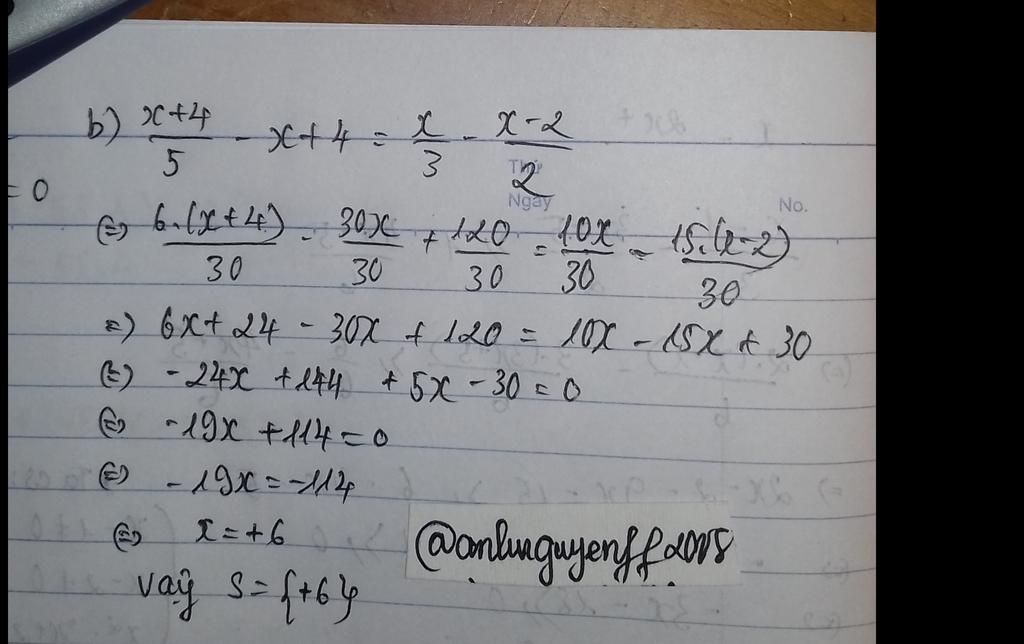 b) (x+4)/5 - x+4 = x/3 - (x-2)/2
Thứ
Ngày
No.
= 0
(=) 6.(x+4)/30 - 30x/30 + 120/30 = 10x/30 - 15.(x-2)/30
=) 6x+24 - 30x + 120 = 10x - 15x + 30
(=) -24x +144 +5x -30 = 0
(=) -19x +114 = 0
(=) -19x = -114
(=) x = +6
vậy S = {+6}